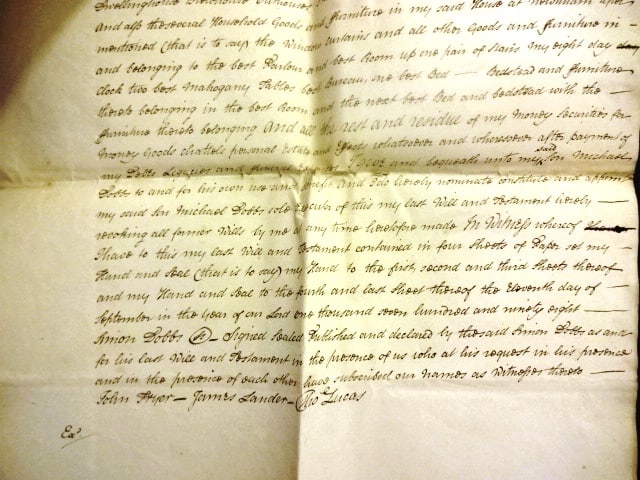 Dwellinghouse
And also the several Household Goods and furniture in my said House at
mentioned (that is to say) the Window Curtains and all other Goods and furniture in
and belonging to the best Parlour and best Room up one pair of Stairs my eight day
clock two best Mahogany Tables best Bureau, one best Bed — Bedstead and furniture
thereto belonging in the best Room and the next best Bed and bedstead with the —
furniture thereto belonging And all the rest and residue of my Money Securities for
Money Goods chattels personal Estate and Effects whatsoever and wheresoever after payment of
my Debts Legacies and I Give and bequeath unto my said Son Michael
Dobbs to and for his own use and benefit And I do hereby nominate constitute and appoint
my said Son Michael Dobbs sole Executor of this my last Will and Testament hereby —
revoking all former Wills by me at any time heretofore made In Witness whereof
I have to this my last Will and Testament contained in four Sheets of Paper set my —
Hand and Seal (that is to say) my Hand to the first second and third Sheets thereof
and my Hand and Seal to the fourth and last Sheet thereof the Eleventh day of —
September in the Year of our Lord one thousand seven hundred and ninety eight —
Simon Dobbs — Signed Sealed Published and declared by the said Simon Dobbs as and
for his last Will and Testament in the presence of us who at his request in his presence
and in the presence of each other have subscribed our Names as Witnesses thereto —
John Fryer — James Lander — Tho Lucas
Exd.